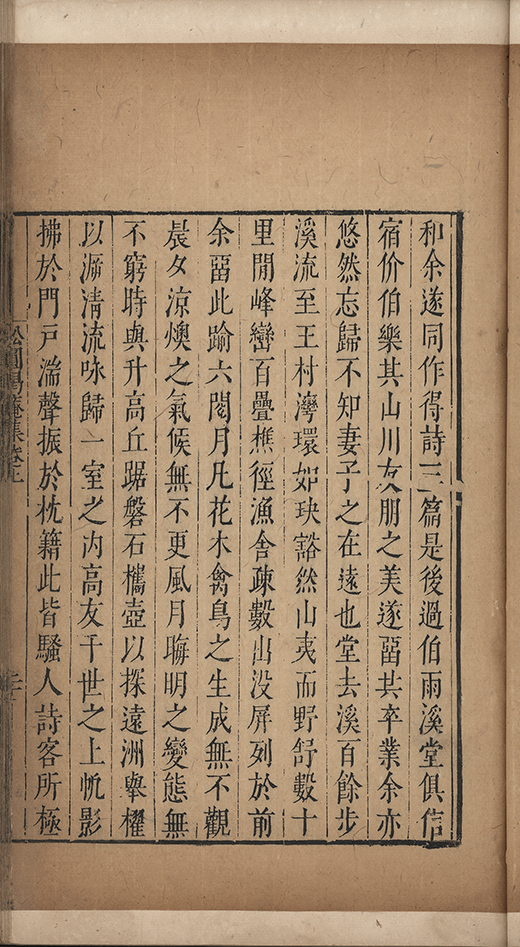 和余遂同作得詩三篇是後過伯雨溪堂俱信
宿价伯樂其山川友朋之美遂畱共卒業余亦
悠然忘歸不知妻子之在遠也堂去溪百餘步
溪流至王村灣環如玦豁然山夷而野舒數十
里閒峰巒百疊樵徑漁舍疎數出没屏列於前
余畱此踰六閱月凡花木禽鳥之生成無不觀
晨夕涼燠之氣候無不更風月晦明之變態無
不窮時與升高丘踞磐石攜壺以探遠洲舉櫂
以泝清流咏歸一室之内高友千世之上帆影
拂於門戸湍聲振於枕籍此皆騷人詩客所極
松圓偈庵集卷上